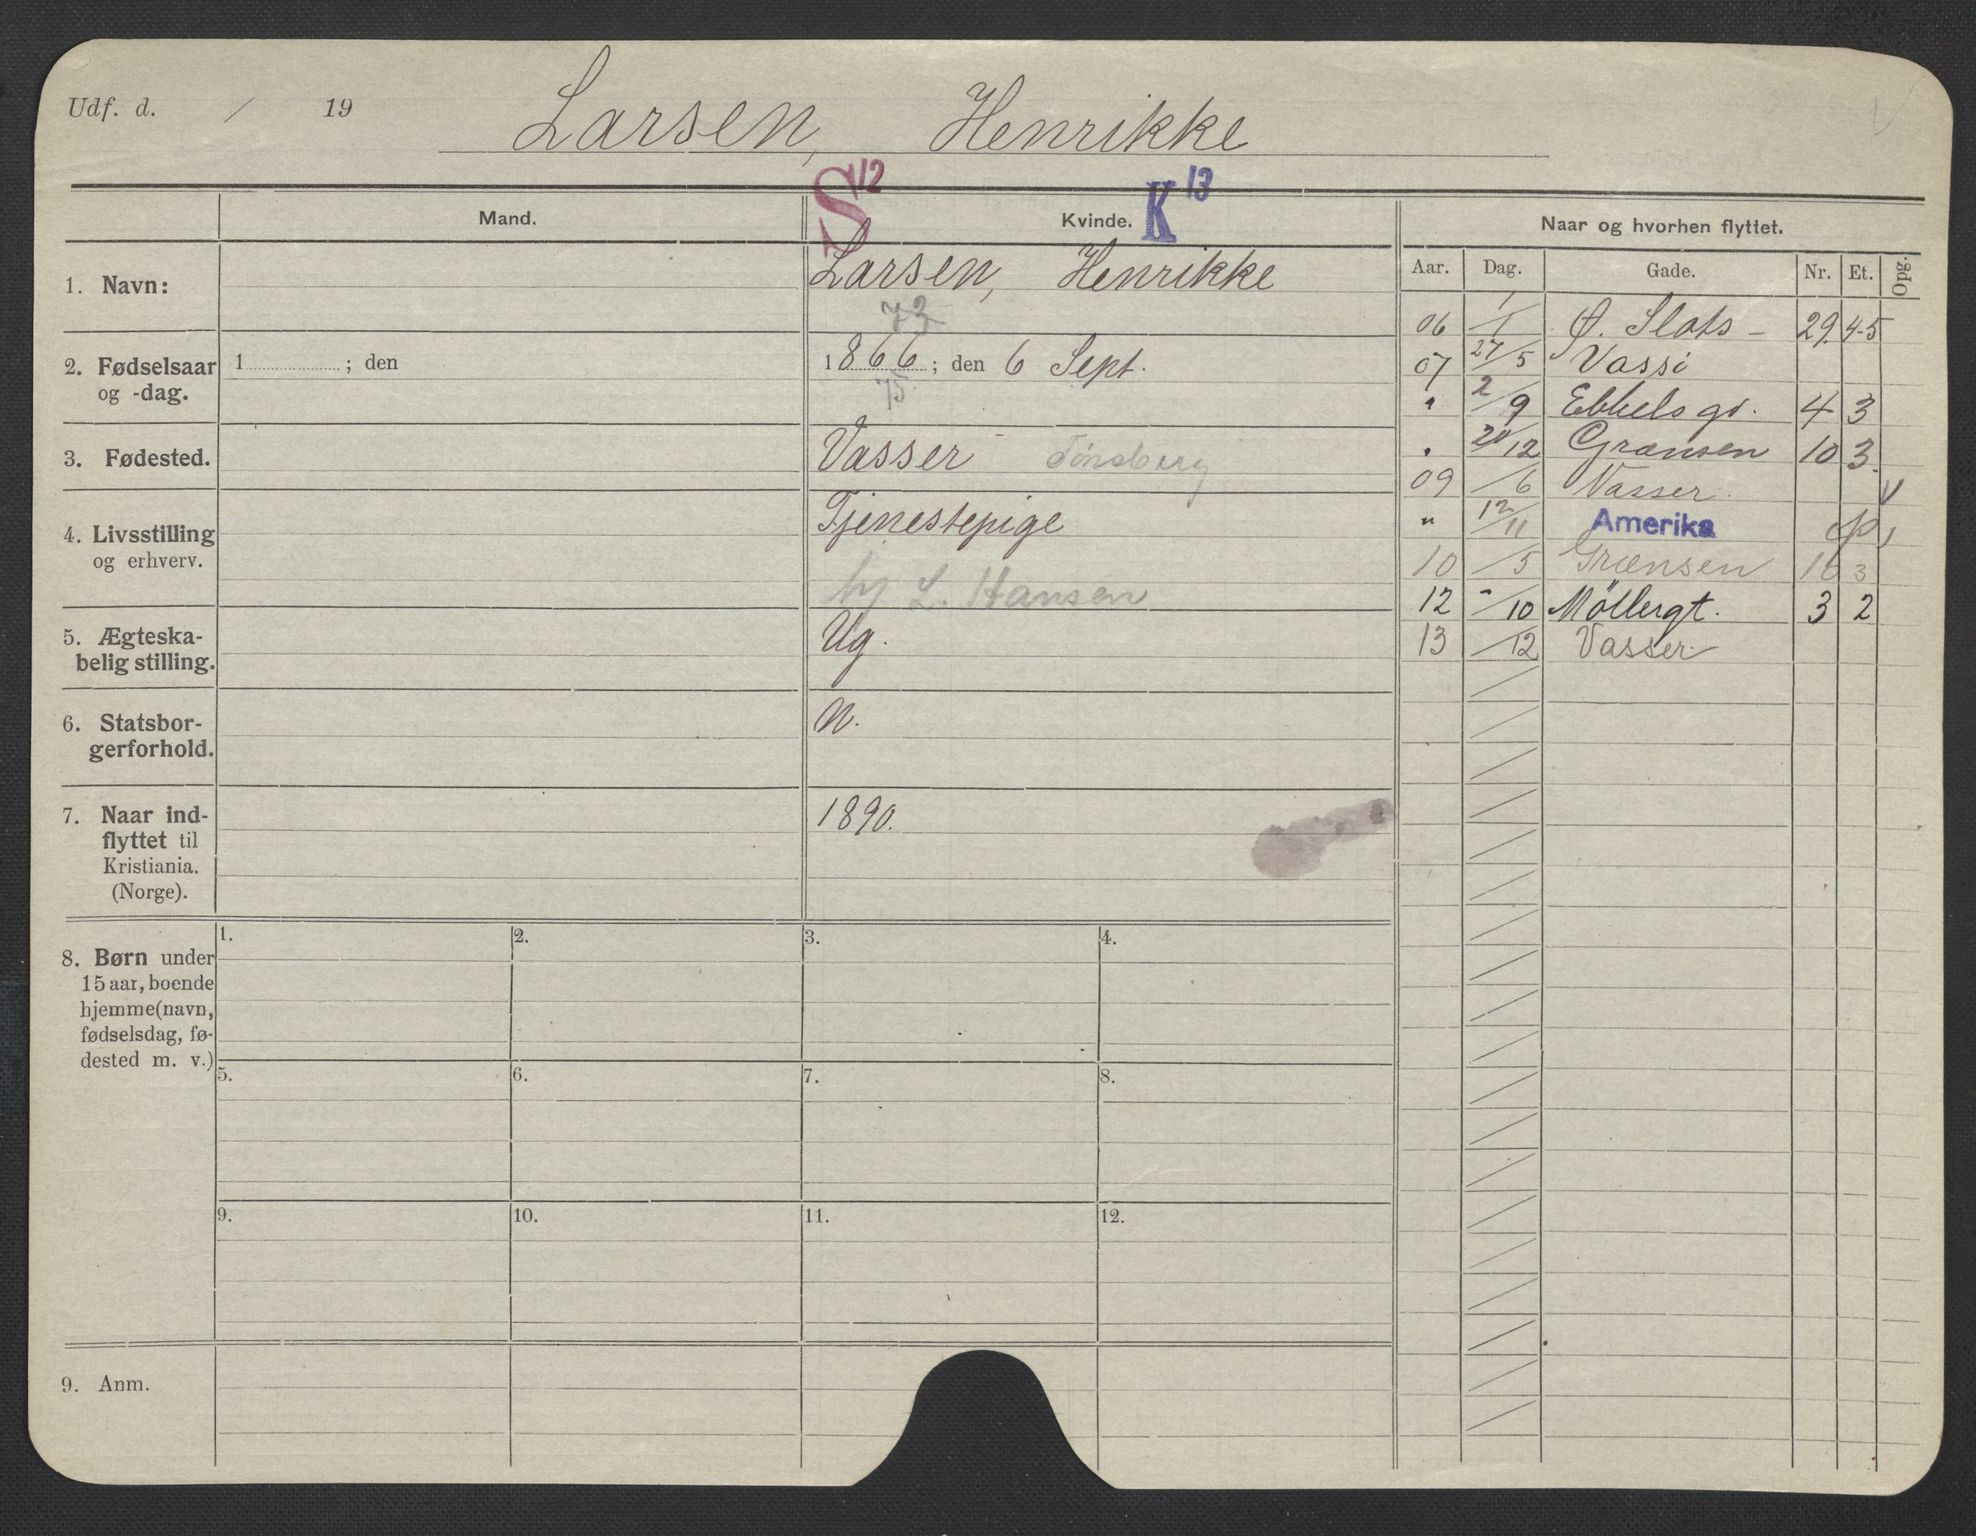 Udf. d. / 19 Larsen, Henrikke
S 12 K 13
Mand. Kvinde. Naar og hvorhen flyttet.
Aar. Dag. Gade. Nr. Et. Opg.
1. Navn: Larsen, Henrikke
73
2. Fødselsaar og -dag. 1 ; den
1866; den 6 Sept.
75
3. Fødested. Vasser Tønsberg
4. Livsstilling og erhverv. Tjenestepige
hj L. Hansen
5. Ægteska-
belig stilling. Ug.
6. Statsbor-
gerforhold. N.
7. Naar ind-
flyttet til
Kristiania.
(Norge). 1890.
06 1/1 Ø. Slots- 29. 4-5
07 27/5 Vassi
" 2/9 Ebbelsgt. 4 3
" /12 Grænsen 10 3
09 /6 Vasser.
" 12/11 Amerika
10 /5 Grænsen 10 3
12 /10 Møllergt. 3 2
13 /12 Vasser.
8. Børn under
15 aar, boende
hjemme (navn,
fødselsdag, fø-
dested m. v.)
1. 2. 3. 4.
5. 6. 7. 8.
9. 10. 11. 12.
9. Anm.